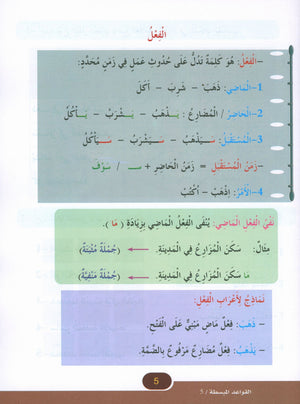 الْفِعْلُ
-الْفِعْلُ: هُوَ كَلِمَةٌ تَدُلُّ عَلَى حُدُوثِ عَمَلٍ فِي زَمَنٍ مُحَدَّدٍ:
1-الْمَاضِي: ذَهَبَ - شَرِبَ - أَكَلَ
2-الْحَاضِرُ / الْمُضَارِعُ : يَذْهَبُ - يَشْرَبُ - يَأْكُلُ
3-الْمُسْتَقْبَلُ: سَيَذْهَبُ - سَيَشْرَبُ - سَيَأْكُلُ
-زَمَنُ الْمُسْتَقْبَلِ = زَمَنُ الْحَاضِرِ + سـ / سَوْفَ
4-الْأَمْرُ: اِذْهَبْ - اُكْتُبْ
نَفْيُ الْفِعْلِ الْمَاضِي: يُنْفَى الْفِعْلُ الْمَاضِي بِزِيَادَةِ ( مَا ) .
مِثَالٌ: سَكَنَ الْمُزَارِعُ فِي الْمَدِينَةِ. ← (جُمْلَةٌ مُثْبَتَةٌ)
مَا سَكَنَ الْمُزَارِعُ فِي الْمَدِينَةِ. ← (جُمْلَةٌ مَنْفِيَّةٌ)
نَمَاذِجُ لِأَعْرَابِ الْفِعْلِ:
- ذَهَبَ: فِعْلٌ مَاضٍ مَبْنِيٌّ عَلَى الْفَتْحِ.
- يَذْهَبُ: فِعْلٌ مُضَارِعٌ مَرْفُوعٌ بِالضَّمَّةِ.
5
القواعد المبسطة / 5